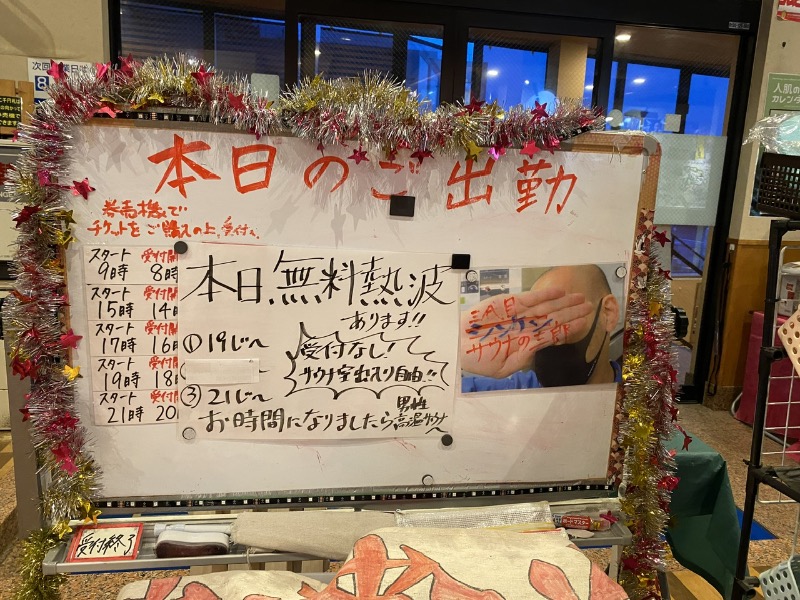 本日のご出勤
券売機で
チケットをご購入の上、受付へ
スタート 受付開
9時 8時
スタート 受付開
15時 14
スタート 受付開
17時 16
スタート 受付開
19時 18
スタート 受付開
21時 20
本日、無料熱波
あります!!
① 19じ〜
③ 21じ〜
受付なし!
サウナ室出入り自由!!
お時間になりましたら
男性
高温サウナへ
三代目
サウナの
受付終了
次回
人肌の
カレンダ